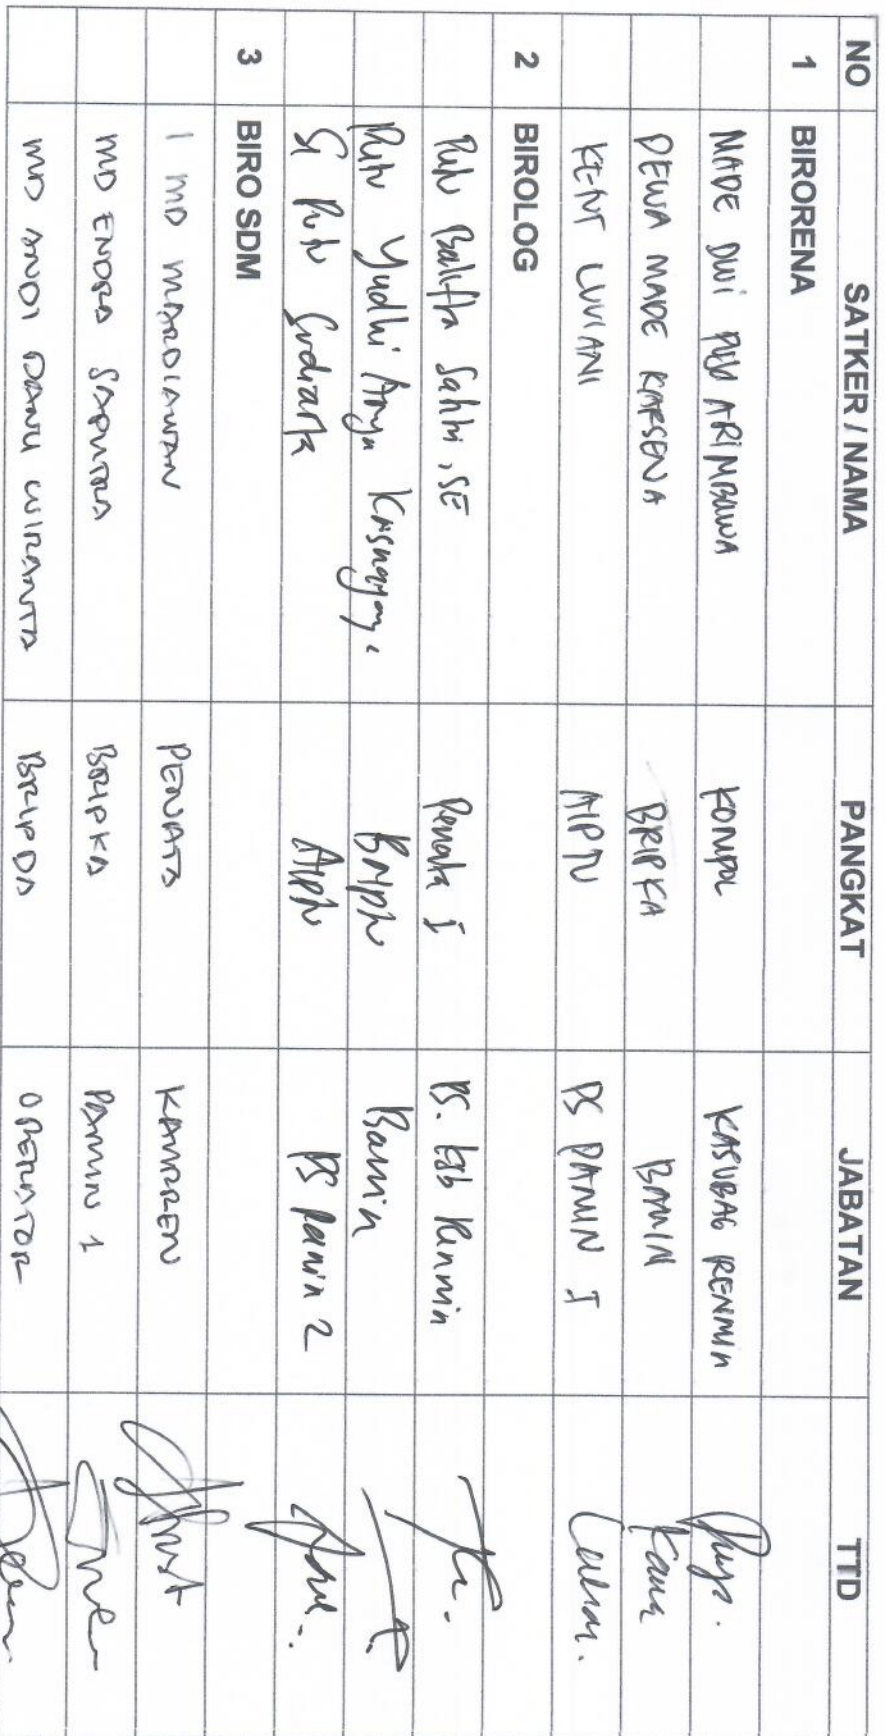 NO SATKER / NAMA PANGKAT JABATAN TTD
1 BIRORENA
MADE DWI ARIMBAWA KOMPOL KASUBAG RENMIN
DEWA MADE KARSENA BRIPKA BAMIN
KETUT LUVIANI AIPTU PS PAMIN I
2 BIROLOG
Putu Sakhi, SE Penata I PS. Renmin
Putu Yudhi Arya Briptu Bamin
Putu Sudiarta Aiptu PS Pamin 2
3 BIRO SDM
I MD MARDIAWAN PENATA
MD ENDRA SAPUTRA BRIPKA PAMIN 1
MD ANDI DANU WIRANTA BRIPDA OPERATOR